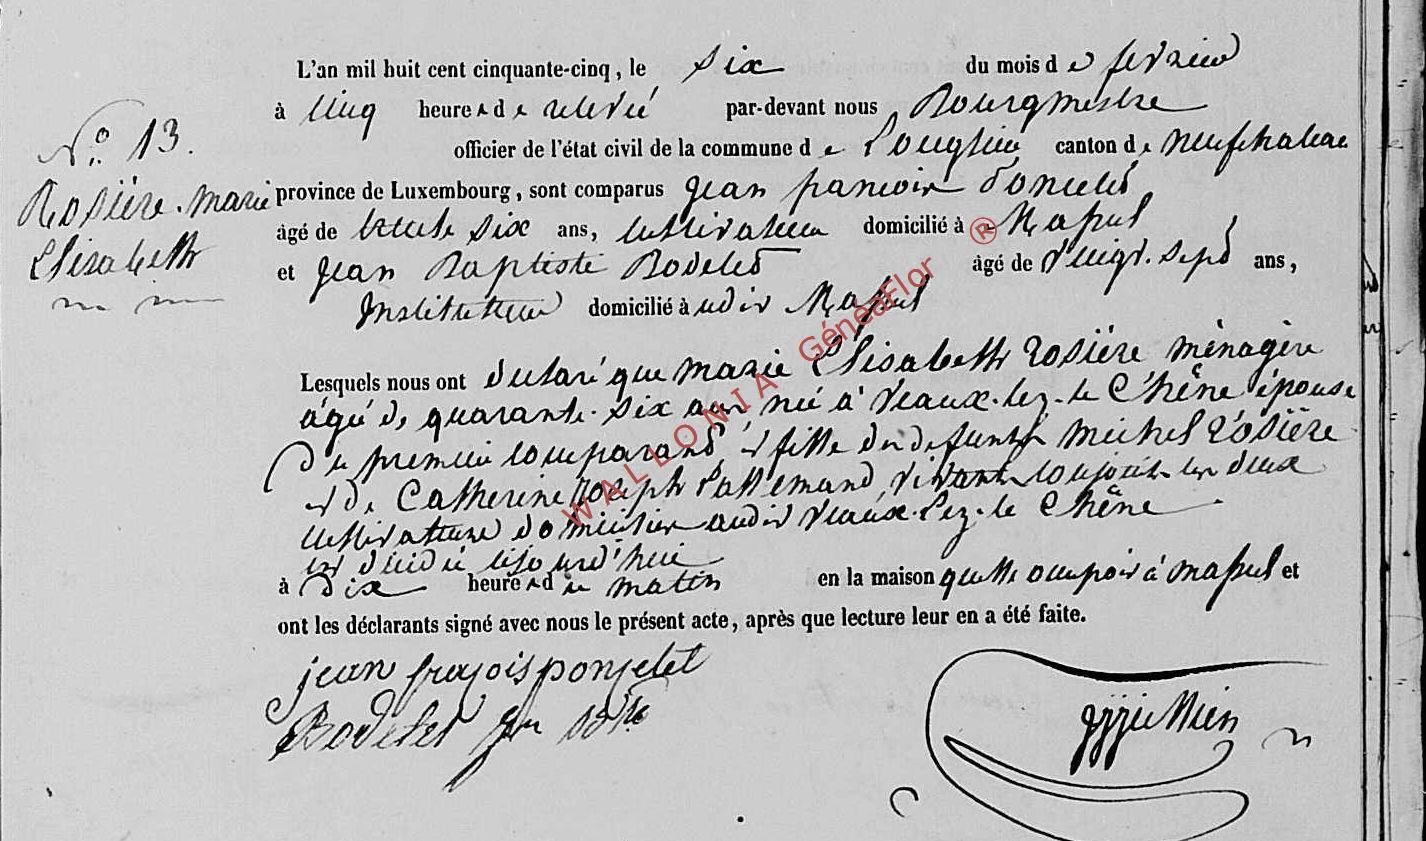 L'an mil huit cent cinquante-cinq, le six du mois d e fevrier
à cinq heures de relevée par-devant nous Bourgmestre
N.° 13.
officier de l'état civil de la commune d e Longlier canton de neufchateau
Rosière. marie
province de Luxembourg, sont comparus jean francois Poncelet
âgé de trente six ans, cultivateur domicilié à Massul
Elisabeth
et Jean Baptiste Bodelet âgé de vingt. sept ans,
Instituteur domicilié à udit Massul
Lesquels nous ont declaré que marie Elisabeth rosière ménagère
âgée de quarante-six ans née à Veaux-lez-le Chêne épouse
du premier comparand et fille des defunts michel rosière
et de Catherine Joseph Lallemand vivant toujours les deux
cultivateurs domiciliés audit Veaux-Lez-le Chêne
est decedée cejourd'hui
à dix heures du matin en la maison quelle occupoit à massul et
ont les déclarants signé avec nous le présent acte, après que lecture leur en a été faite.
jean fraçois ponselet
Bodelet jean Bte
WALLONIA GénéaFlor ®